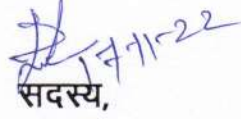 7-11-22
सदस्य,